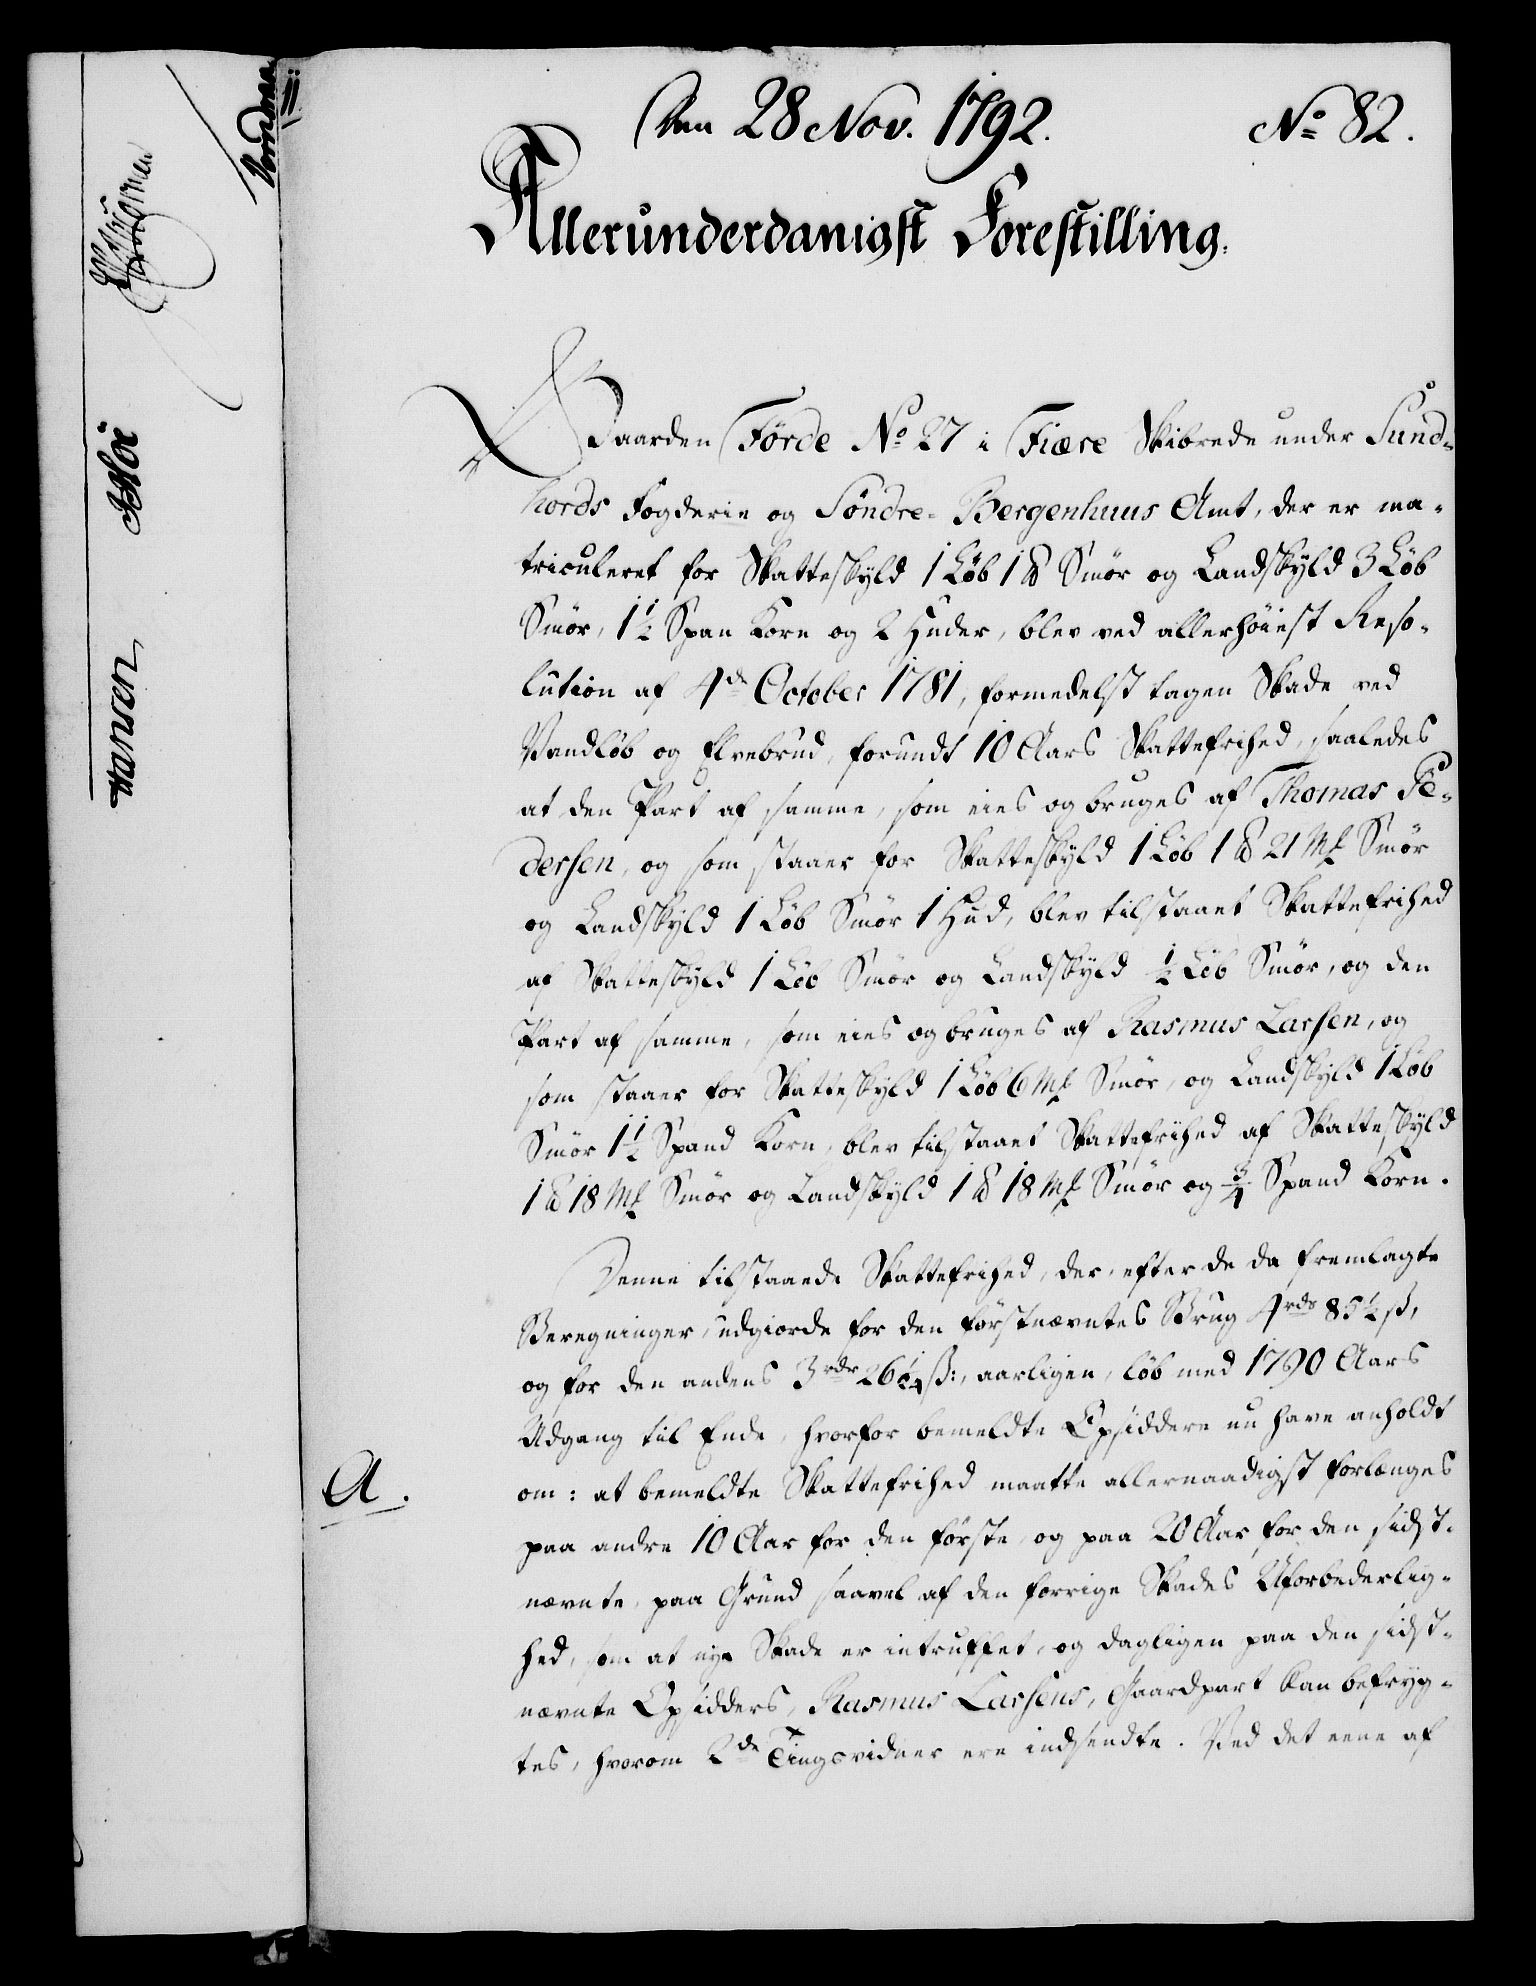 Den 28 Nov. 1792. No 82.
Allerunderdanigst Forestilling.
Gaarden Förde No 27 i Fiære Skibrede under Sund-
hords Fogderie og Söndre-Bergenhuus Amt, der er ma-
triculeret for Skatteskyld 1 Löb 1 ℔ Smör og Landskyld 3 Löb
Smör, 1½ Span Korn og 2 Huder, blev ved allerhöiest Reso-
lution af 4de October 1781, formedelst tagen Skade ved
Vandlöb og Elvebrud, forundt 10 Aars Skattefrihed, saaledes
at den Part af samme, som eies og bruges af Thomas Pe-
dersen, og som staaer for Skatteskyld 1 Löb 1 ℔ 21 Mk Smör
og Landskyld 1 Löb Smör 1 Hud, blev tilstaaet Skattefrihed
af Skatteskyld 1 Löb Smör og Landskyld ½ Löb Smör, og den
Part af samme, som eies og bruges af Rasmus Larsen, og
som staaer for Skatteskyld 1 Löb 6 Mk Smör, og Landskyld 1 Löb
Smör 1½ Spand Korn, blev tilstaaet Skattefrihed af Skatteskyld
1 ℔ 18 Mk Smör og Landskyld 1 ℔ 18 Mk Smör og ¾ Spand Korn.
Denne tilstaaede Skattefrihed, der, efter de da fremlagte
Beregninger, udgiorde for den förstnævntes Brug 4 rdr 85½ ß,
og for den andens 3 rdr 26¼ ß:, aarligen, löb med 1790 Aars
Udgang til Ende, hvorfor bemeldte Opsiddere nu have anholdt
A. om: at bemeldte Skattefrihed maatte allernaadigst forlænges
paa andre 10 Aar for den förste, og paa 20 Aar for den sidst-
nævnte, paa Grund saavel af den forrige Skades Uforbederlig-
hed, som at nye Skade er intruffet, og dagligen paa den sidst-
nævnte Opsidders, Rasmus Larsens, Gaardpart kan befryg-
tes, hvorom 2de Tingsvidner ere indsendte. Ved det eene af